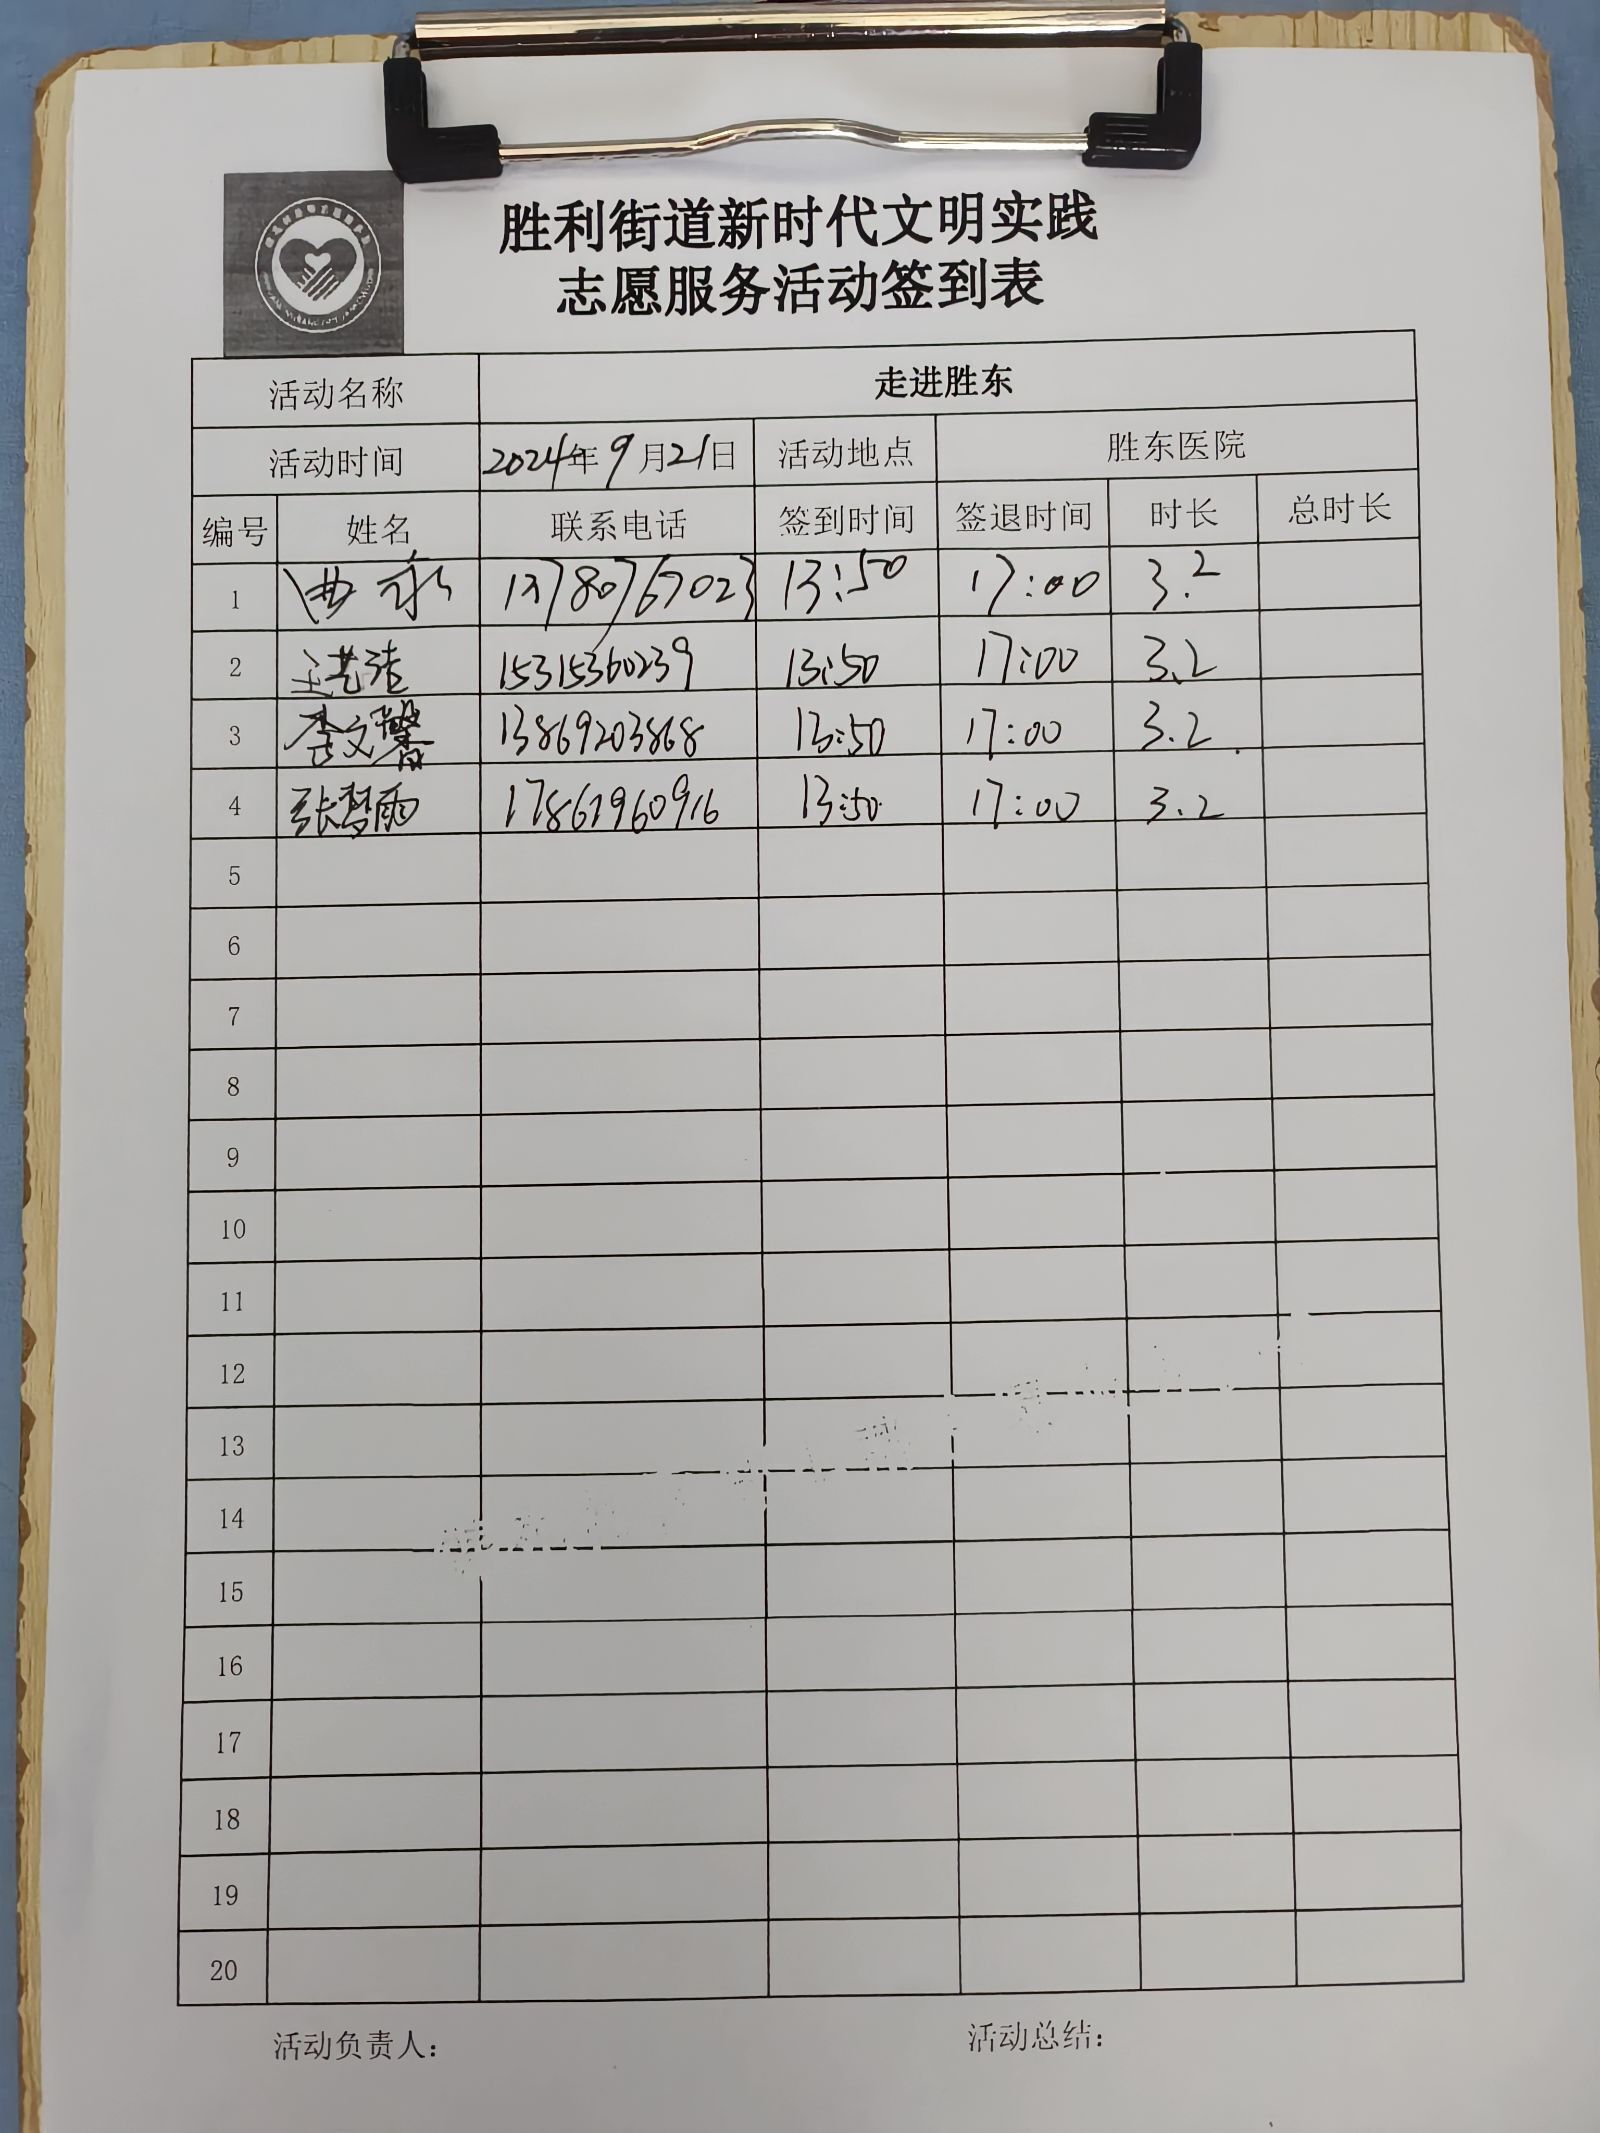 胜利街道新时代文明实践
志愿服务活动签到表
活动名称 走进胜东
活动时间 2024年9月21日 活动地点 胜东医院
编号 姓名 联系电话 签到时间 签退时间 时长 总时长
1 曲永 13780767023 13:50 17:00 3.2
2 王艺洁 15315360239 13:50 17:00 3.2
3 李文馨 13869203868 13:50 17:00 3.2
4 张梦雨 17861960916 13:50 17:00 3.2
5
6
7
8
9
10
11
12
13
14
15
16
17
18
19
20
活动负责人: 活动总结: